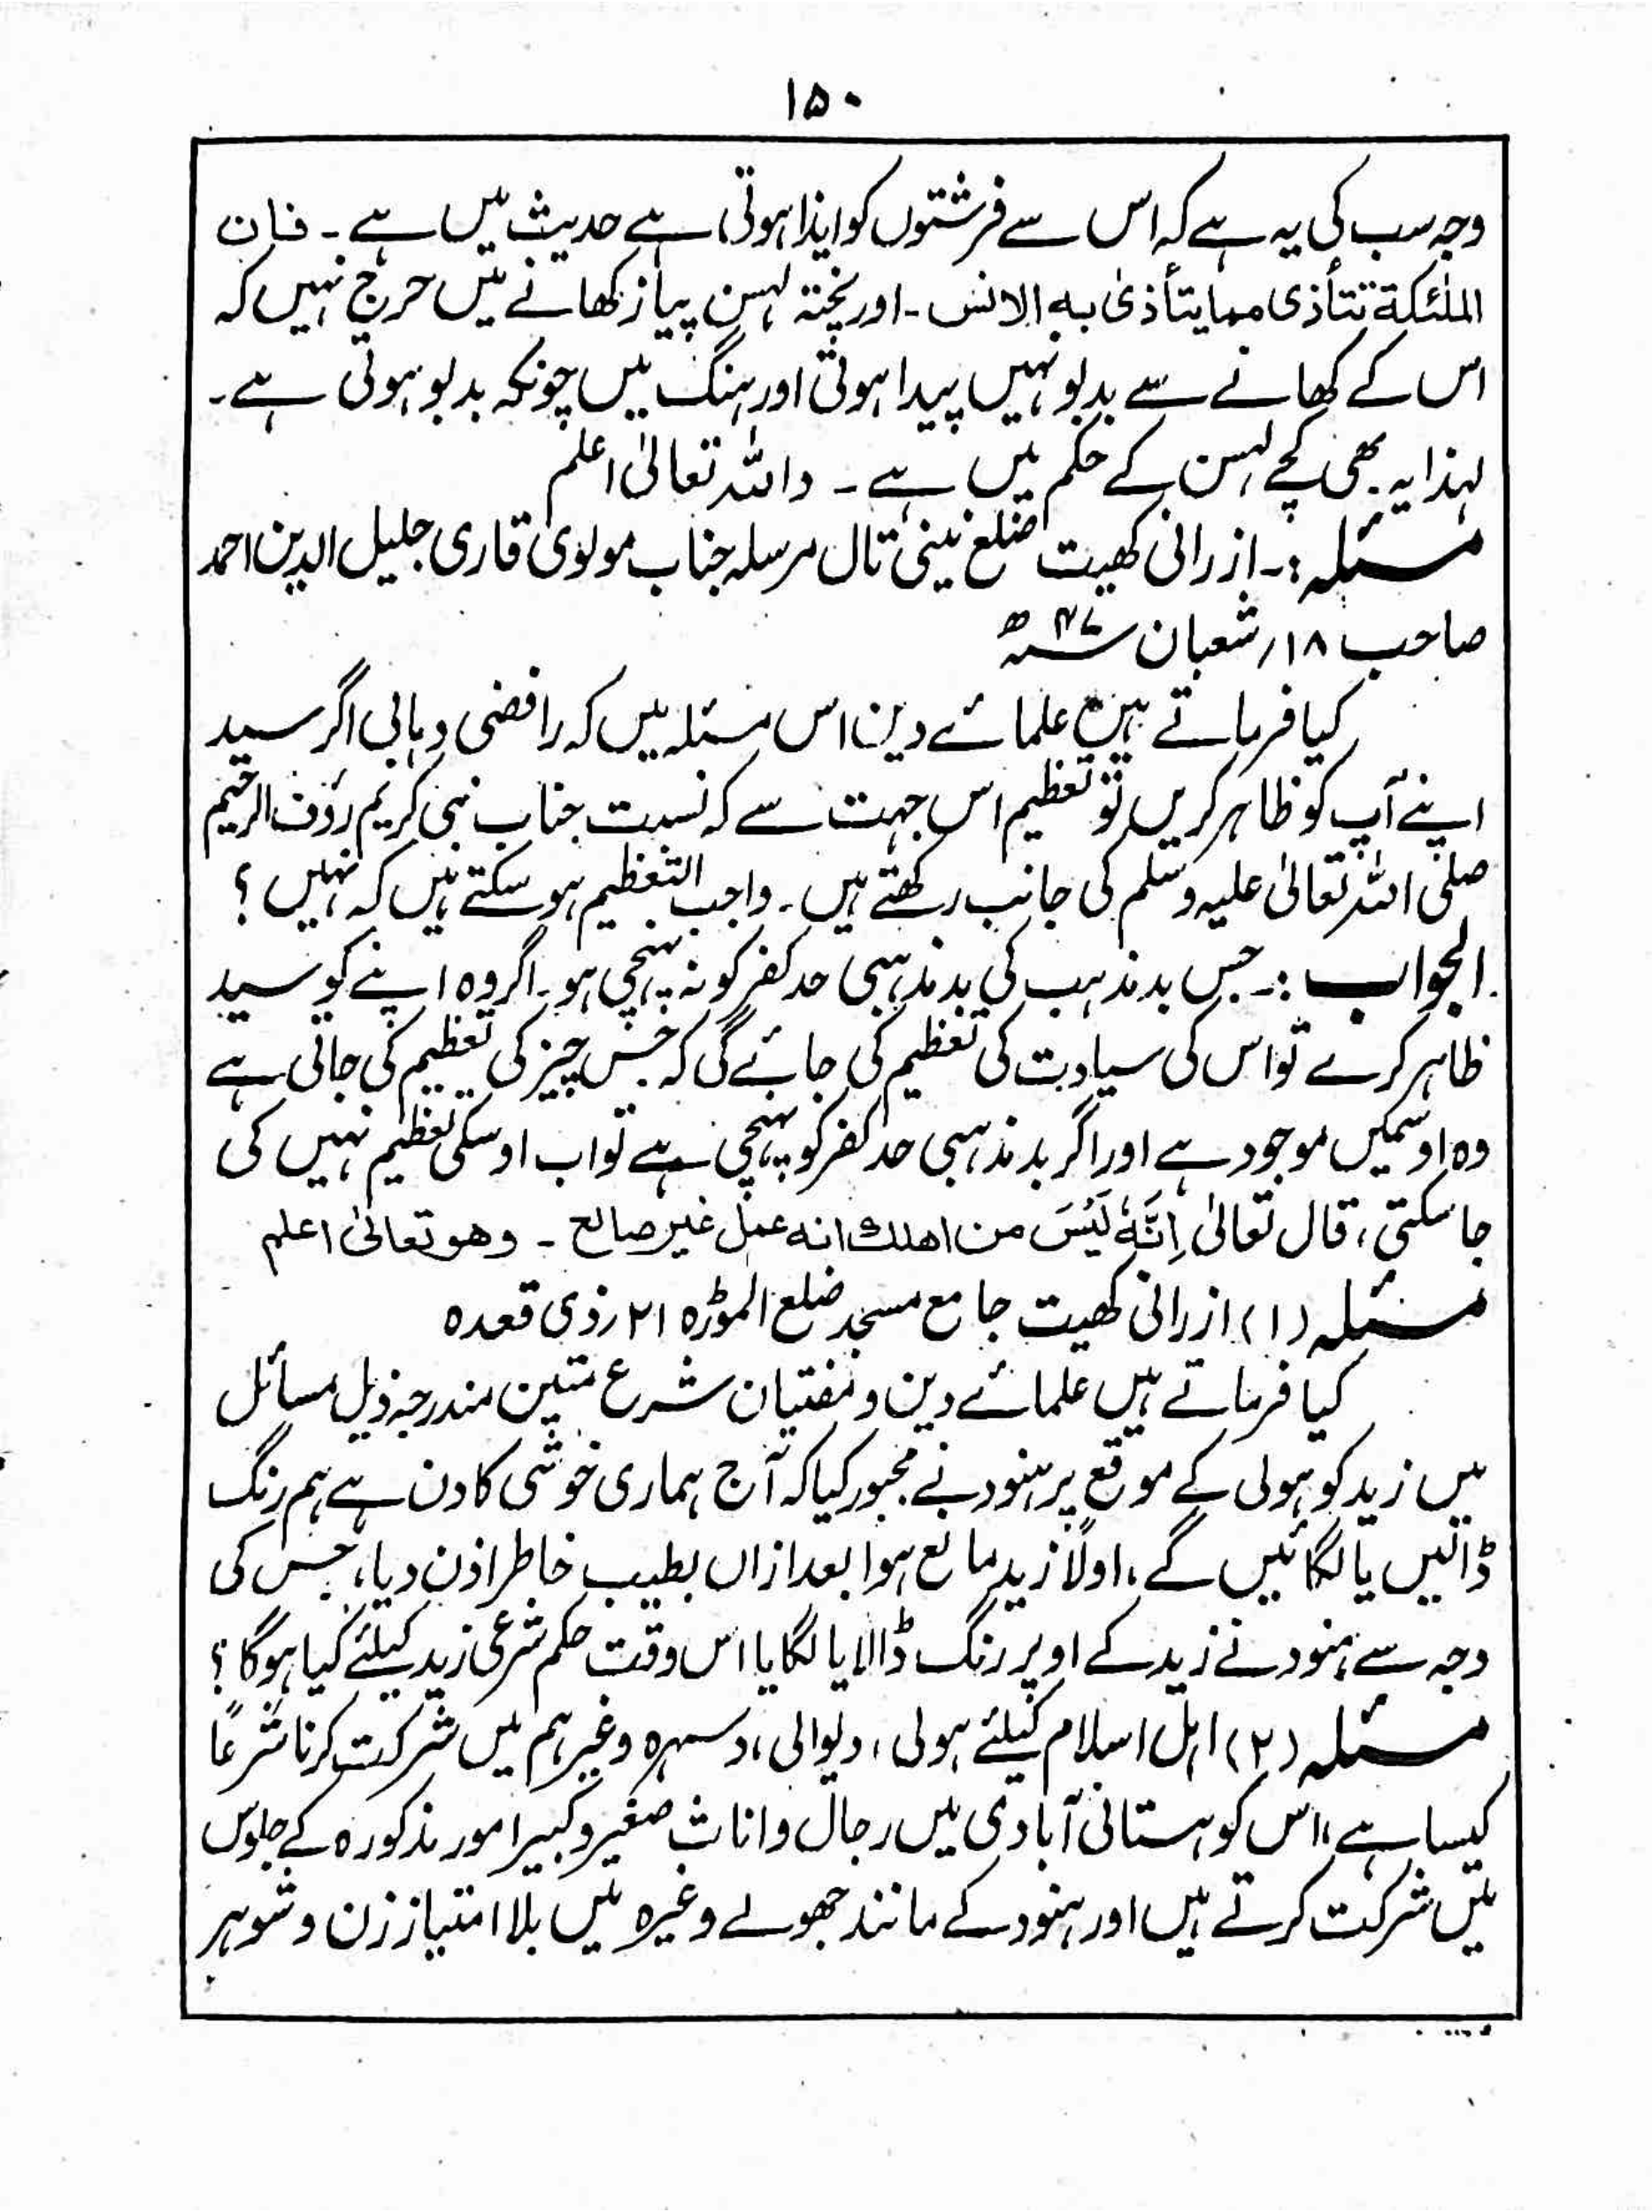 ۱۵۰
وجہ سب کی یہ ہے کہ اس سے فرشتوں کو ایذا ہوتی ہے حدیث میں ہے ۔ فان
الملٰئکة تتأذی مما یتأذیٰ به الانس ۔ اور پختہ لہسن پیاز کھانے میں حرج نہیں کہ
اس کے کھانے سے بدبو نہیں پیدا ہوتی اور ہنگ میں چونکہ بدبو ہوتی ہے ۔
لہٰذا یہ بھی کچے لہسن کے حکم میں ہے ۔ واللہ تعالیٰ اعلم
مسئلہ :۔ از رانی کھیت ضلع نینی تال مرسلہ جناب مولوی قاری جلیل الدین احمد
صاحب ۱۸؍ شعبان ۴۷ھ
کیا فرماتے ہیں علمائے دین اس مسئلہ میں کہ رافضی وہابی اگر سید
اپنے آپ کو ظاہر کریں تو تعظیم اس جہت سے کہ نسبت جناب نبی کریم رؤف الرحیم
صلی اللہ تعالیٰ علیہ وسلم کی جانب رکھتے ہیں ۔ واجب التعظیم ہو سکتے ہیں کہ نہیں ؟
الجواب :۔ جس بدمذہب کی بدمذہبی حد کفر کو نہ پہنچی ہو ۔ اگر وہ اپنے کو سید
ظاہر کرے تو اس کی سیادت کی تعظیم کی جائے گی کہ جس چیز کی تعظیم کی جاتی ہے
وہ اوسمیں موجود ہے اور اگر بدمذہبی حد کفر کو پہنچی ہے تو اب اوسکی تعظیم نہیں کی
جا سکتی ، قال تعالیٰ اِنَّهٗ لَیْسَ من اهلك انه عمل غیر صالح ۔ وهو تعالیٰ اعلم
مسئلہ (۱) از رانی کھیت جامع مسجد ضلع الموڑہ ۲۱؍ ذی قعدہ
کیا فرماتے ہیں علمائے دین و مفتیان شرع متین مندرجہ ذیل مسائل
میں زید کو ہولی کے موقع پر ہنود نے مجبور کیا کہ آج ہماری خوشی کا دن ہے ہم رنگ
ڈالیں یا لگائیں گے ، اولاً زید مانع ہوا بعد ازاں بطیب خاطر اذن دیا ، جس کی
وجہ سے ہنود نے زید کے اوپر رنگ ڈالا یا لگایا اس وقت حکم شرعی زید کیلئے کیا ہوگا ؟
مسئلہ (۲) اہل اسلام کیلئے ہولی ، دیوالی ، دسہرہ وغیرہم میں شرکت کرنا شرعًا
کیسا ہے ، اس کوہستانی آبادی میں رجال و اناث صغیر و کبیر امور مذکورہ کے جلوس
میں شرکت کرتے ہیں اور ہنود کے مانند جھولے وغیرہ میں بلا امتیاز زن و شوہر